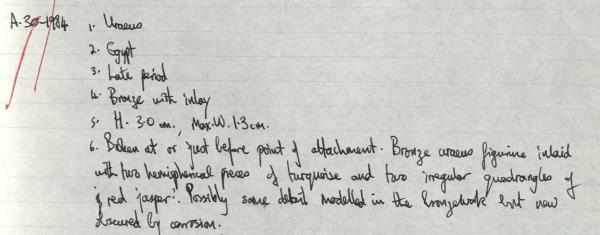 A.30-1984 1. Uraeus
2. Egypt
3. Late period
4. Bronze with inlay
5. H. 3.0 cm., Max.W. 1.3 cm.
6. Broken at or just before point of attachment. Bronze uraeus figurine inlaid
with two hemispherical pieces of turquoise and two irregular quadrangles of
of red jasper. Possibly some detail modelled in the bronzework but now
obscured by corrosion.